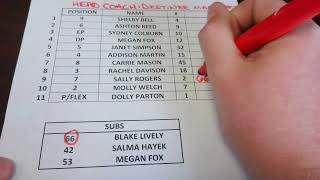 HEAD COACH:
POSITION NAME #
1 4 SHELBY BELL 4
2 6 ASHTON REED 9
3 EP SYDNEY COLBURN 10
4 DP MEGAN FOX 12
5 5 JANET SIMPSON 32
6 9 ADDISON MARTIN 15
7 8 CARRIE MASON 45
8 3 RACHEL DAVISON 18
9 7 SALLY ROGERS 2
10 2 MOLLY WELCH 7
11 P/FLEX DOLLY PARTON 1
SUBS
66 BLAKE LIVELY
42 SALMA HAYEK
53 MEGAN FOX